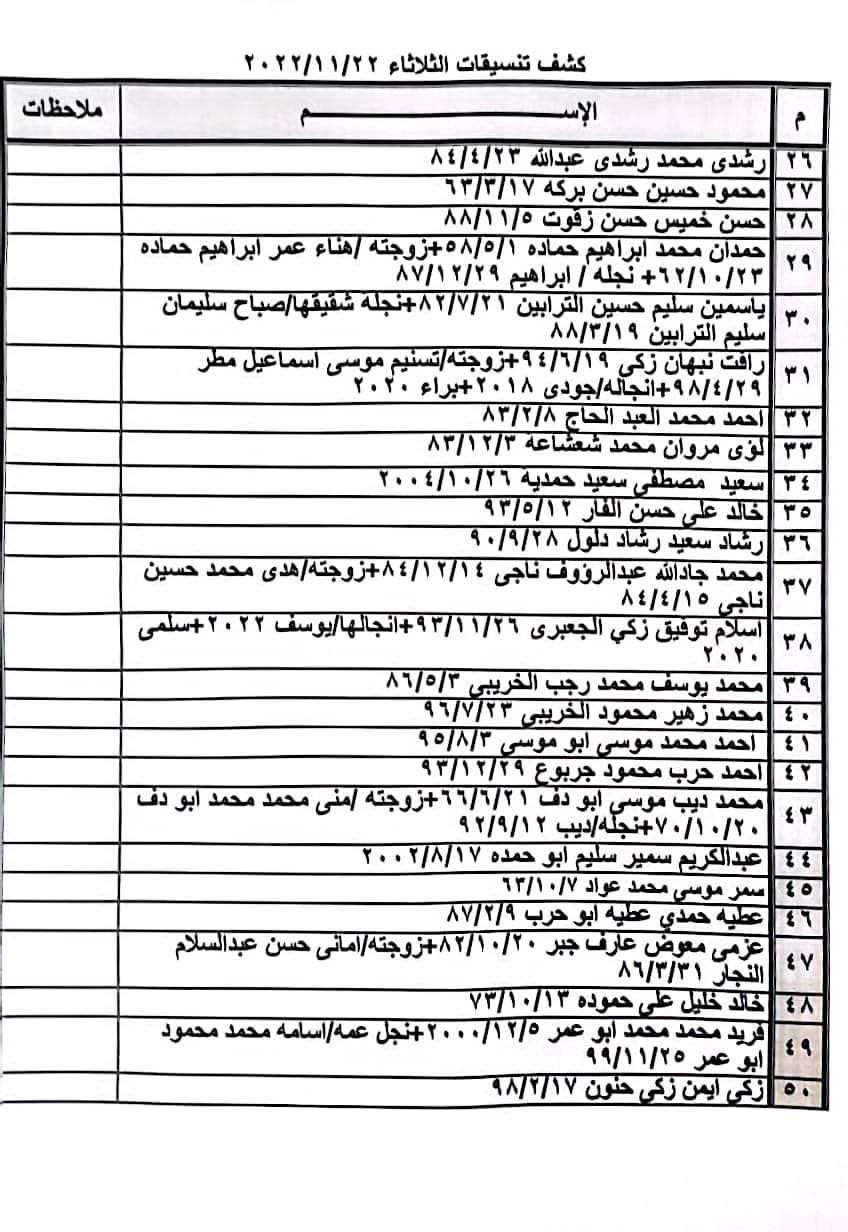 كشف تنسيقات الثلاثاء ٢٠٢٢/١١/٢٢
م الإســـــــــم ملاحظات
٢٦ رشدى محمد رشدى عبدالله ٨٤/٤/٢٣
٢٧ محمود حسين حسن بركه ٦٣/٣/١٧
٢٨ حسن خميس حسن زقوت ٨٨/١١/٥
٢٩ حمدان محمد ابراهيم حماده ٥٨/٥/١+زوجته /هناء عمر ابراهيم حماده
٦٢/١٠/٢٣+ نجله / ابراهيم ٨٧/١٢/٢٩
٣٠ ياسمين سليم حسين الترابين ٨٢/٧/٢١+نجلة شقيقها/صباح سليمان
سليم الترابين ٨٨/٣/١٩
٣١ رافت نبهان زكى ٩٤/٦/١٩+زوجته/تسنيم موسى اسماعيل مطر
٩٨/٤/٢٩+انجاله/جودى ٢٠١٨+براء ٢٠٢٠
٣٢ احمد محمد العبد الحاج ٨٣/٢/٨
٣٣ لؤى مروان محمد شعشاعة ٨٣/١٢/٣
٣٤ سعيد مصطفى سعيد حمدية ٢٠٠٤/١٠/٢٦
٣٥ خالد على حسن الفار ٩٣/٥/١٢
٣٦ رشاد سعيد رشاد دلول ٩٠/٩/٢٨
٣٧ محمد جادالله عبدالرؤوف ناجى ٨٤/١٢/١٤+زوجته/هدى محمد حسين
ناجى ٨٤/٤/١٥
٣٨ اسلام توفيق زكي الجعبرى ٩٣/١١/٢٦+انجالها/يوسف ٢٠٢٢+سلمى
٢٠٢٠
٣٩ محمد يوسف محمد رجب الخريبي ٨٦/٥/٣
٤٠ محمد زهير محمود الخريبي ٩٦/٧/٢٣
٤١ احمد محمد موسي ابو موسي ٩٥/٨/٣
٤٢ احمد حرب محمود جربوع ٩٣/١٢/٢٩
٤٣ محمد ديب موسي ابو دف ٦٦/٦/٢١+زوجته /منى محمد محمد ابو دف
٧٠/١٠/٢٠+نجله/ديب ٩٢/٩/١٢
٤٤ عبدالكريم سمير سليم ابو حمده ٢٠٠٢/٨/١٧
٤٥ سمر موسي محمد عواد ٦٣/١٠/٧
٤٦ عطيه حمدي عطيه ابو حرب ٨٧/٢/٩
٤٧ عزمى معوض عارف جبر ٨٢/١٠/٢٠+زوجته/امانى حسن عبدالسلام
النجار ٨٦/٣/٣١
٤٨ خالد خليل على حموده ٧٣/١٠/١٣
٤٩ فريد محمد محمد ابو عمر ٢٠٠٠/١٢/٥+نجل عمه/اسامه محمد محمود
ابو عمر ٩٩/١١/٢٥
٥٠ زكي ايمن زكي حنون ٩٨/٢/١٧